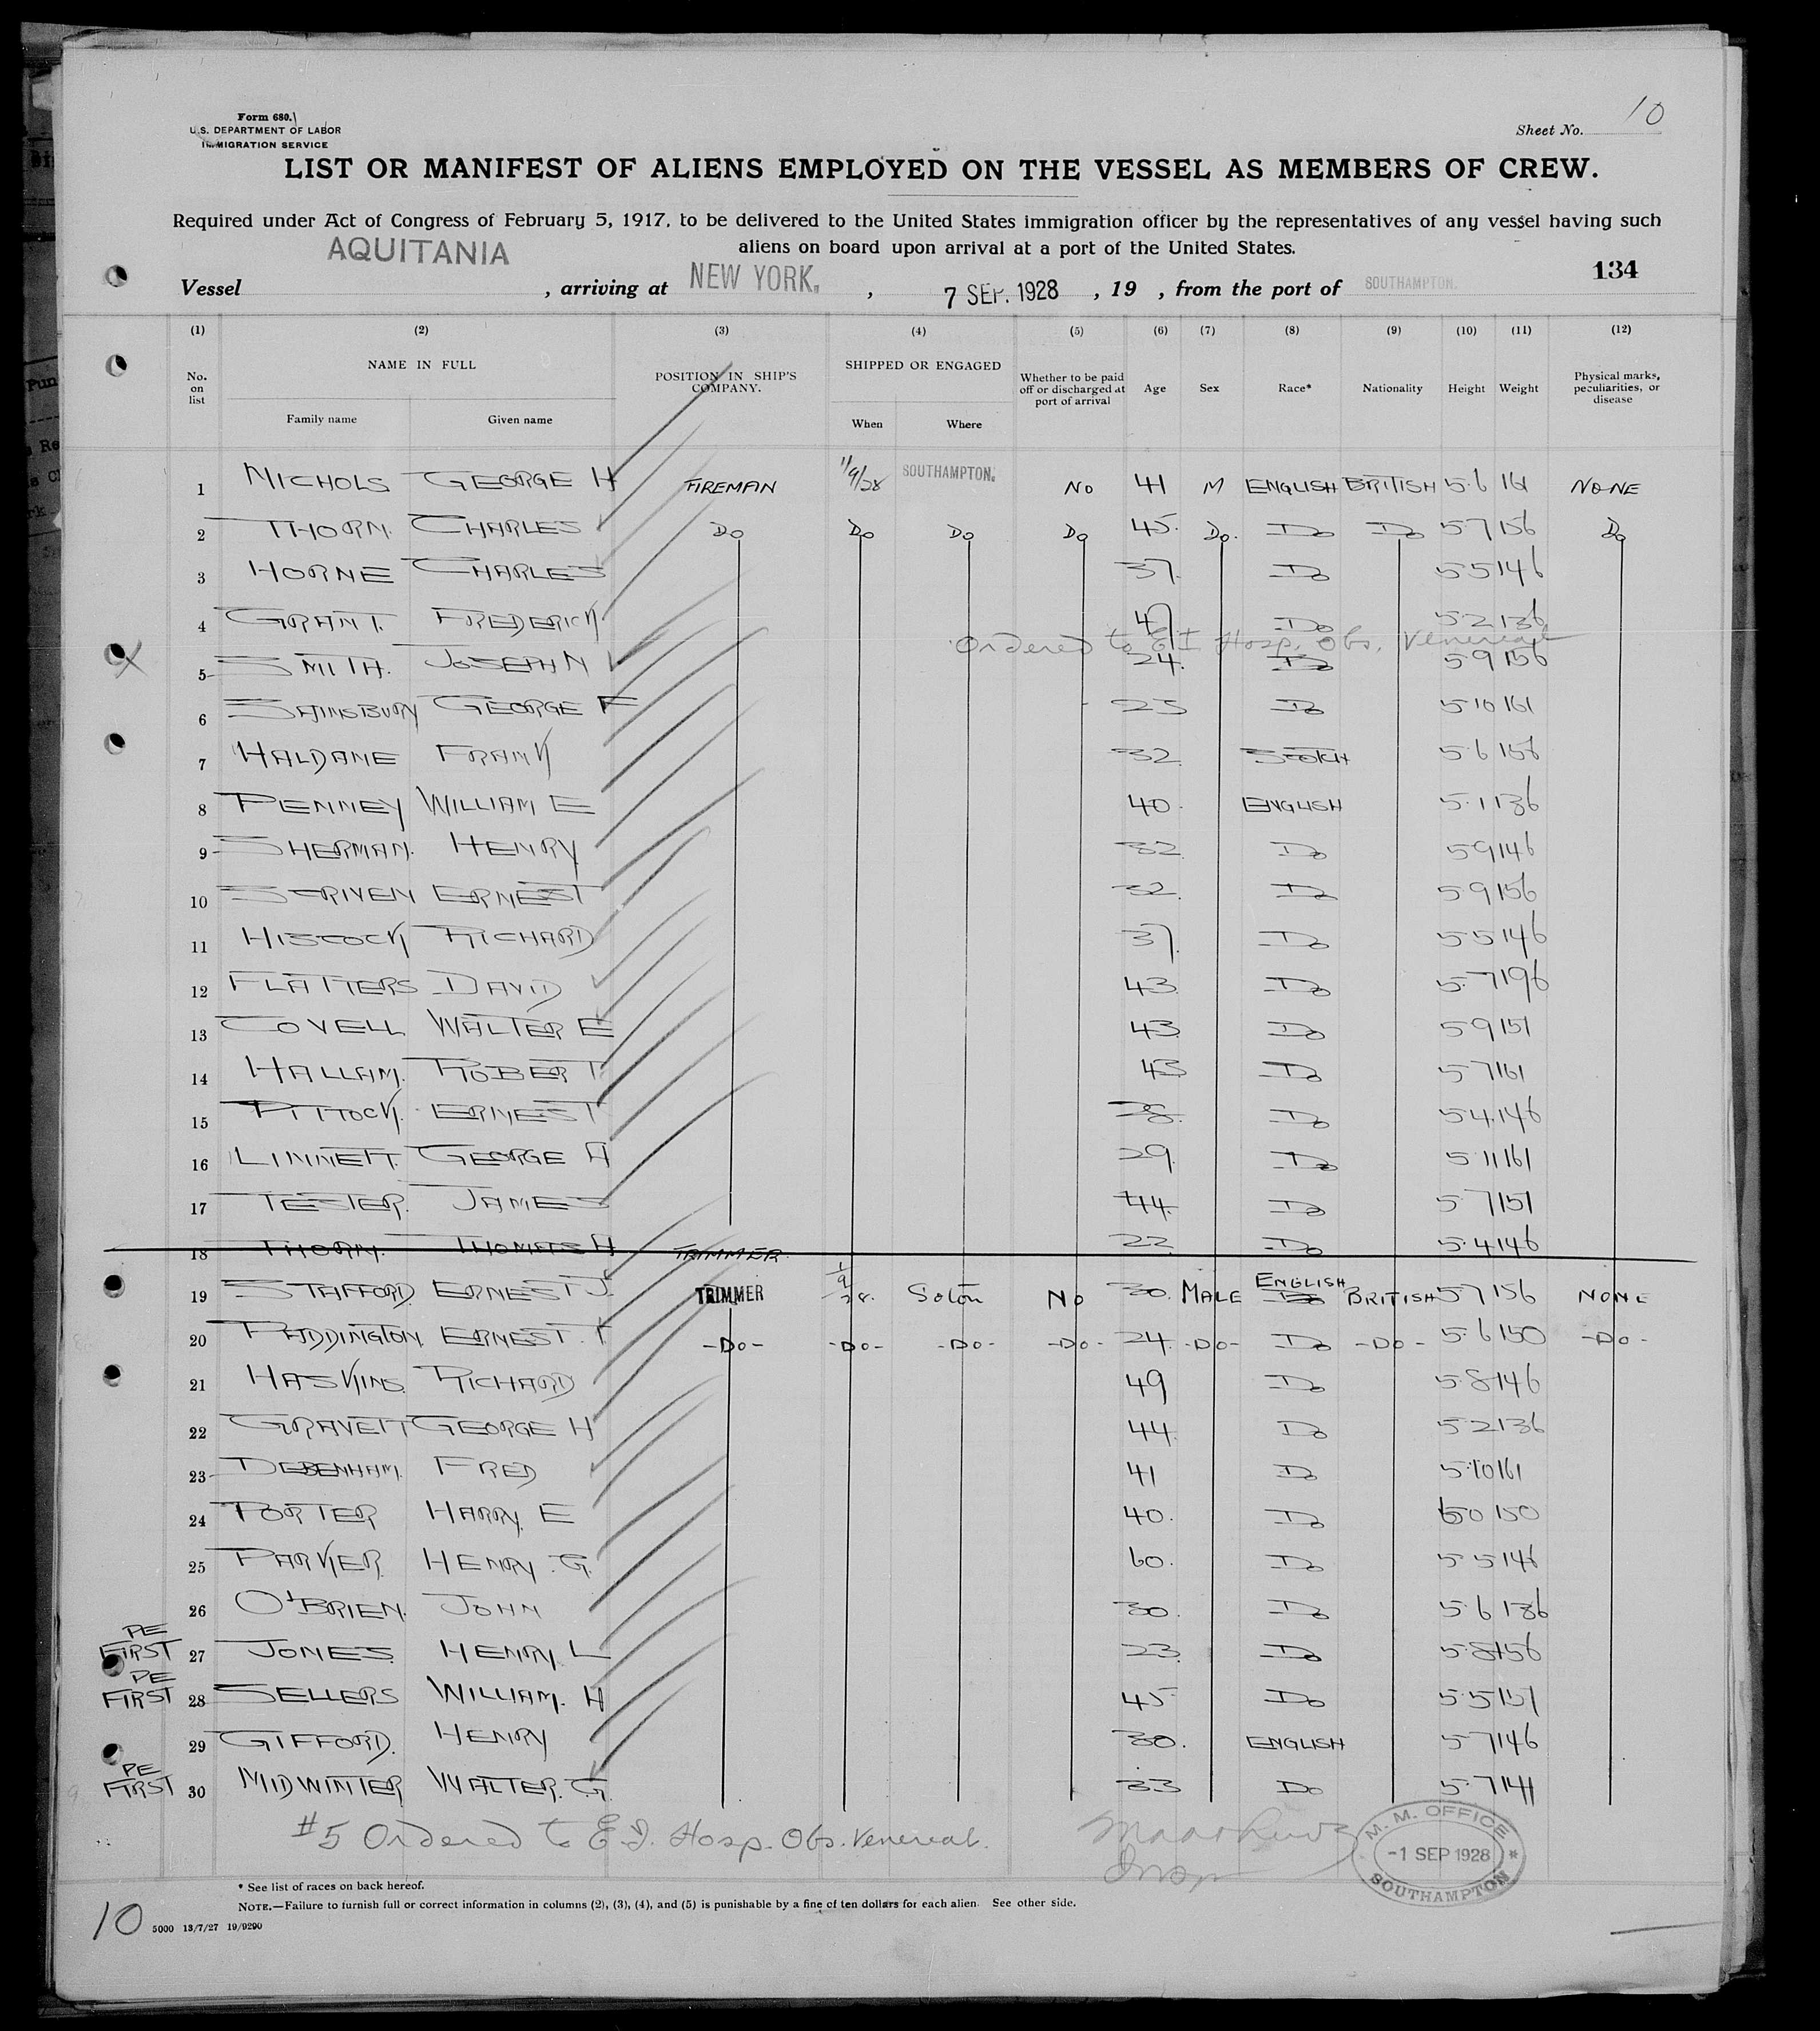 Form 680.
U.S. DEPARTMENT OF LABOR
IMMIGRATION SERVICE
Sheet No. 10
LIST OR MANIFEST OF ALIENS EMPLOYED ON THE VESSEL AS MEMBERS OF CREW.
Required under Act of Congress of February 5, 1917, to be delivered to the United States immigration officer by the representatives of any vessel having such
aliens on board upon arrival at a port of the United States.
134
Vessel AQUITANIA, arriving at NEW YORK., 7 SEP. 1928, 19 , from the port of SOUTHAMPTON.
(1) (2) (3) (4) (5) (6) (7) (8) (9) (10) (11) (12)
No. on list NAME IN FULL Family name Given name POSITION IN SHIP'S COMPANY. SHIPPED OR ENGAGED When Where Whether to be paid off or discharged at port of arrival Age Sex Race* Nationality Height Weight Physical marks, peculiarities, or disease
1 NICHOLS GEORGE H FIREMAN 1/9/28 SOUTHAMPTON. NO 41 M ENGLISH BRITISH 5.6 161 NONE
2 THORN. CHARLES DO DO DO DO 45. DO. DO DO 5.7 156 DO
3 HORNE CHARLES 37. DO 5.5 146
4 GRANT. FREDERICK 47 DO 5.2 136
Ordered to E I Hosp. Obs. Venereal
5 SMITH. JOSEPH N 24. DO 5.9 156
6 SAINSBURY GEORGE F 23 DO 5.10 161
7 HALDANE FRANK 32. SCOTCH 5.6 158
8 PENNEY WILLIAM E 40. ENGLISH 5.1 136
9 SHERMAN. HENRY 32. DO 5.9 146
10 SCRIVEN ERNEST 32. DO 5.9 156
11 HISCOCK RICHARD 37. DO 5.5 146
12 FLATTERS DAVID 43. DO 5.7 196
13 COVELL WALTER E 43. DO 5.9 151
14 HALLAM. ROBERT 43 DO 5.7 161
15 PITTOCK. ERNEST 28. DO 5.4 146
16 LINNETT. GEORGE A 29. DO 5.11 161
17 TESTER. JAMES 44. DO 5.7 151
18 THORN. THOMAS A TRIMMER. 22 DO 5.4 146
19 STAFFORD ERNEST J. TRIMMER 1/9/28. Soton NO 30. MALE ENGLISH DO BRITISH 5.7 156 NONE
20 PADDINGTON ERNEST. T -DO- -DO- -DO- -DO- 24. -DO- DO -DO- 5.6 150 -DO-
21 HASKINS. RICHARD 49 DO 5.8 146
22 GRAVETT GEORGE H 44. DO 5.2 136
23 DEBENHAM. FRED 41 DO 5.10 161
24 PORTER HARRY. E 40. DO 6.0 150
25 PARKER HENRY. G. 60. DO 5.5 146
26 O'BRIEN. JOHN 30. DO 5.6 136
PE FIRST 27 JONES. HENRY. L 23. DO 5.8 156
PE FIRST 28 SELLERS WILLIAM. H 45 DO 5.5 151
29 GIFFORD. HENRY 30. ENGLISH 5.7 146
PE FIRST 30 MIDWINTER WALTER. G. 33 DO 5.7 141
#5 Ordered to E.I. Hosp. Obs. Venereal.
M. M. OFFICE
-1 SEP 1928 *
SOUTHAMPTON
* See list of races on back hereof.
NOTE.—Failure to furnish full or correct information in columns (2), (3), (4), and (5) is punishable by a fine of ten dollars for each alien. See other side.
10 5000 13/7/27 19/9290